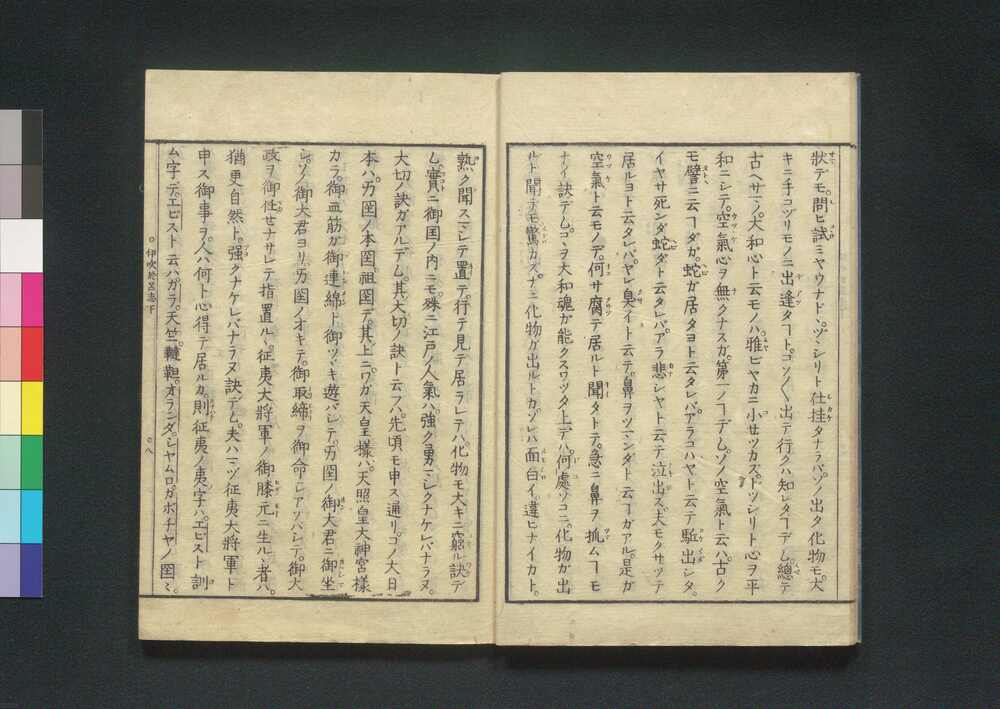 狀デモ。問ヒ試ミヤウナド。ヅシリト仕挂タナラバ。ソノ出タ化物モ。大
キニ手コヅリモノニ出逢タヿト。コソ〳〵出テ行クハ知レタヿデム。總テ
古ヘサマノ。大和心ト云モノハ。雅ビヤカニ。小セツカズ。ドツシリト心ヲ平
和ニシテ。空氣心ヲ無クナスガ。第一ノヿデム。ソノ空氣ト云ハ。古ク
モ譬ニ云ヿダガ。蛇ガ居タヨト云タレバ。アラコハヤト云テ駈出シタ。
イヤサ死ンダ蛇ダト云タレバ。アラ悲シヤト云テ泣出ス。犬モクサツテ
居ルヨト云タレバ。ヤレ臭イト云テ。鼻ヲツマンダト云ヿガアル。是ガ
空氣ト云モノデ。何サ腐テ居ルト聞タトテ。急ニ鼻ヲ抓ムヿモ
ナイ訣デム。コヽヲ大和魂ガ能クスワツタ上デハ。何處ソコニ。化物ガ出
ルト聞テモ驚カズ。ナニ化物ガ出ルトカ。ソレハ面白イ。違ヒナイカト。
熟ク聞スマシテ置テ。行テ見テ居ラレテハ。化物モ大キニ窮ル訣デ
ム。實ニ御国ノ内ニモ。殊ニ江戸ノ人氣ハ。強ク勇マシクナケレバナラヌ。
大切ノ訣ガアルデム。其大切ノ訣ト云フハ。先頃モ申ス通リ。コノ大日
本ハ。万国ノ本国祖国デ。其上ニ。ワガ天皇樣ハ。天照皇大神宮樣
カラ。御血筋ガ御連綿ト御ツヾキ遊バシテ。万国ノ御大君ニ御坐
シ。ソノ御大君ヨリ。万国ノオキテ。御取締ヲ御命シアソバシテ。御大
政ヲ御任セナサレテ指置ルヽ。征夷大將軍ノ御膝元ニ生ルヽ者ハ。
猶更自然ト。強クナケレバナラヌ訣デム。夫ハマヅ征夷大將軍ト
申ス御事ヲ。人ハ何ト心得テ居ルカ。則征夷ノ夷字ハ。エビスト訓
ム字デ。エビスト云ハガラ。天竺。韃靼。オランダ。シヤムロ。ガボチヤノ国〻。
伊吹於呂志下
○八